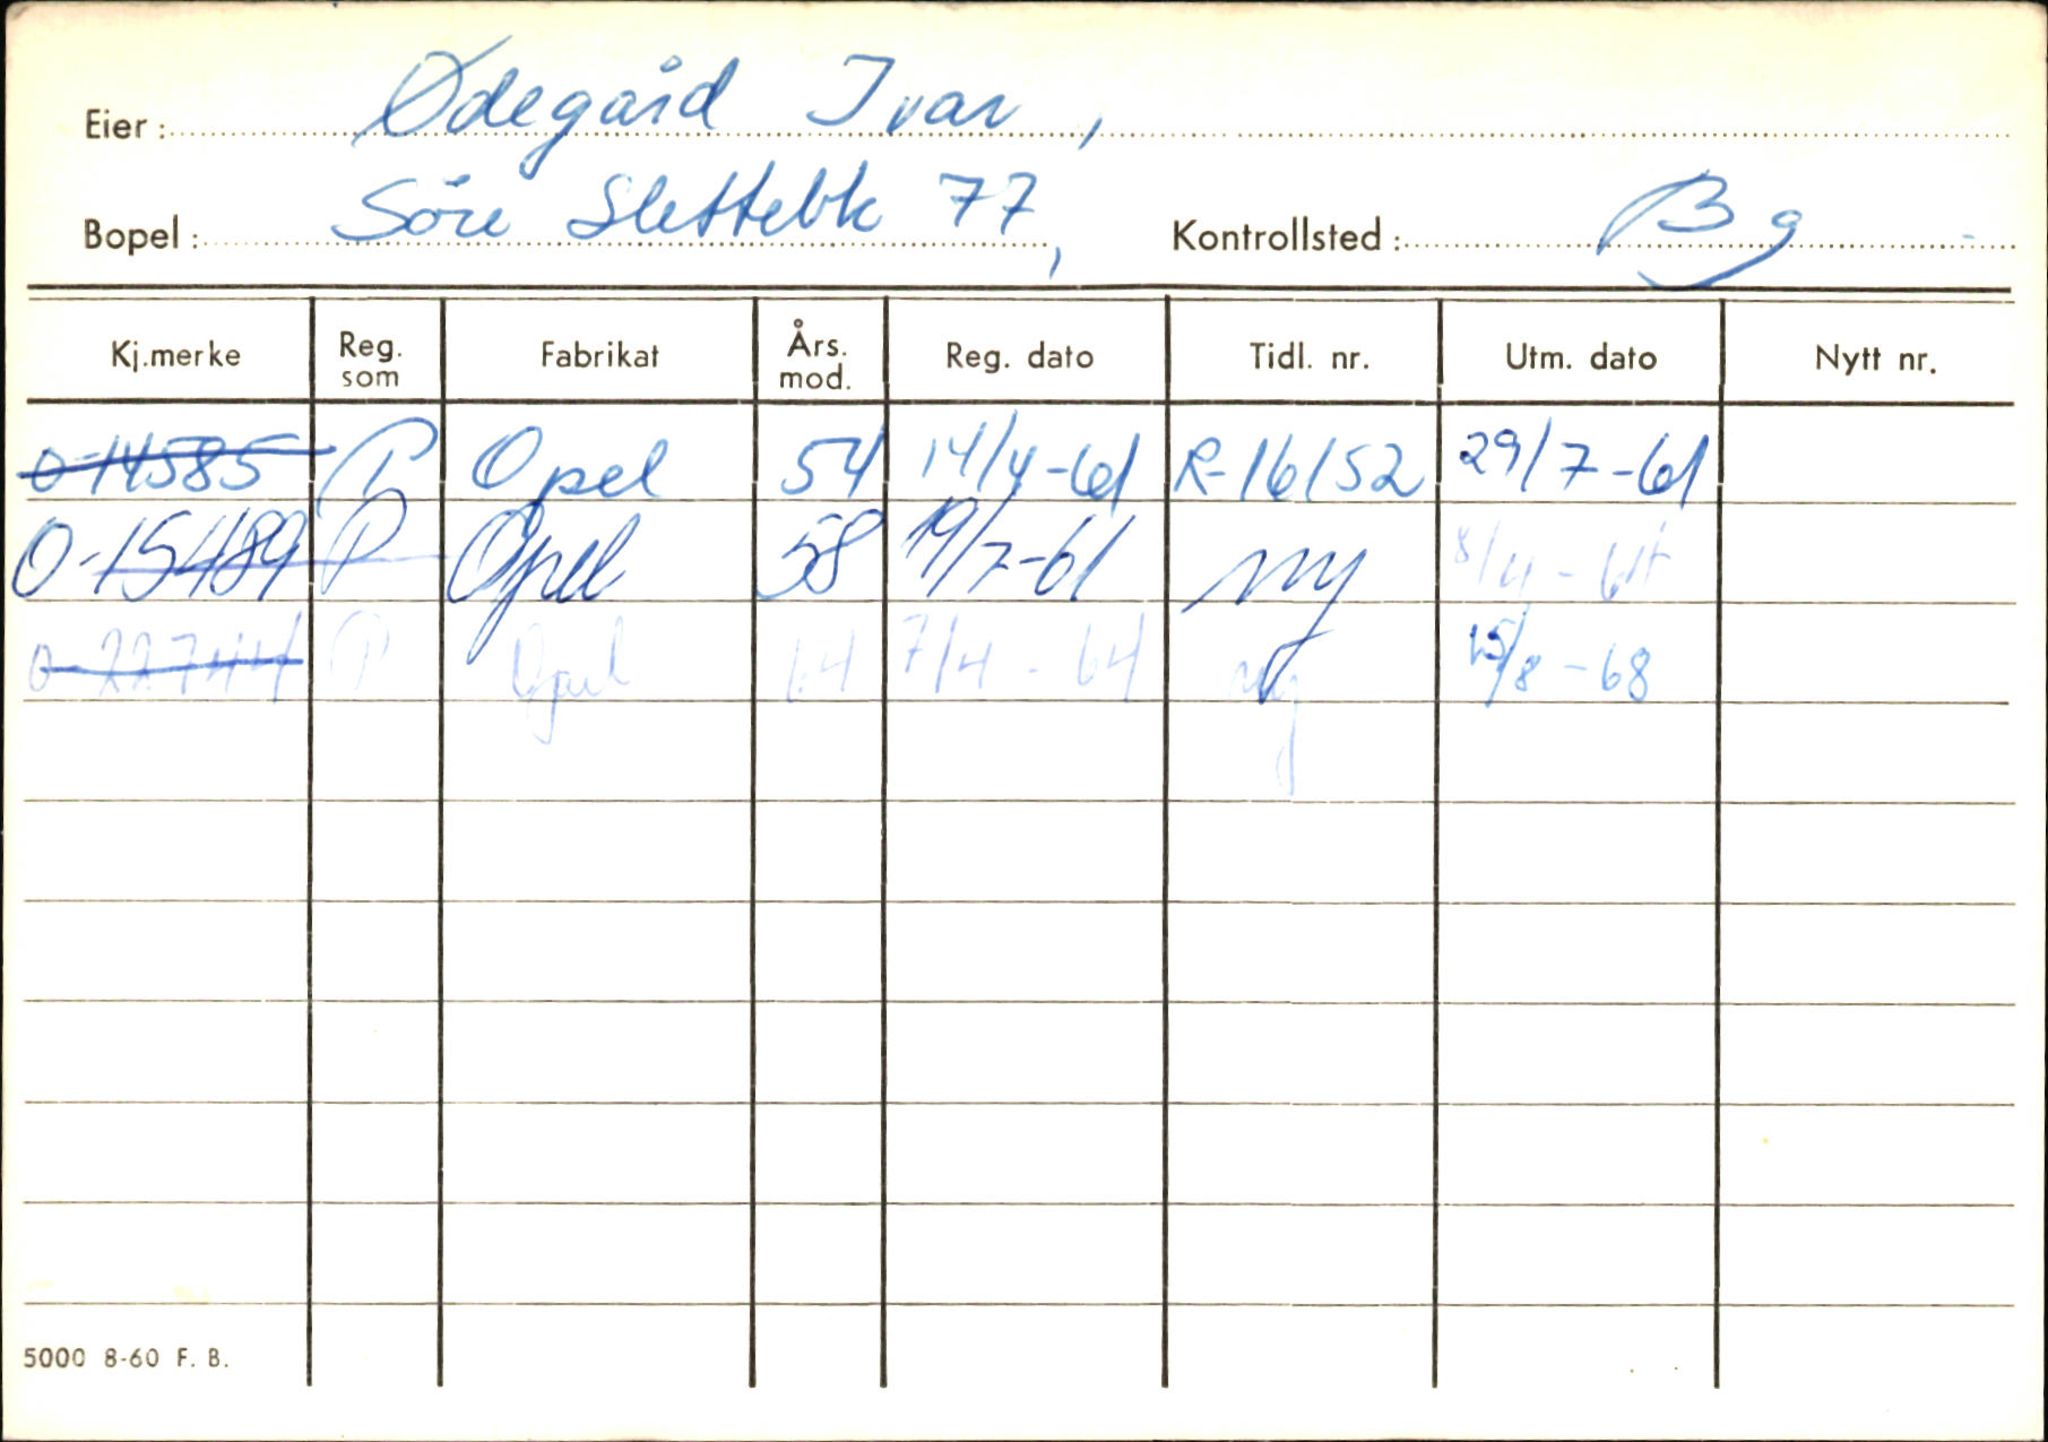 Eier: Ødegård Ivar,
Bopel: Söre Slettebk 77, Kontrollsted: Bg
Kj.merke Reg. som Fabrikat Års. mod. Reg. dato Tidl. nr. Utm. dato Nytt nr.
O-14585 P Opel 54 14/4-61 R-16152 29/7-61
O-15489 P Opel 58 19/7-61 ny 8/4-64
O-22744 P Opel 64 7/4-64 ny 15/8-68
5000 8-60 F. B.